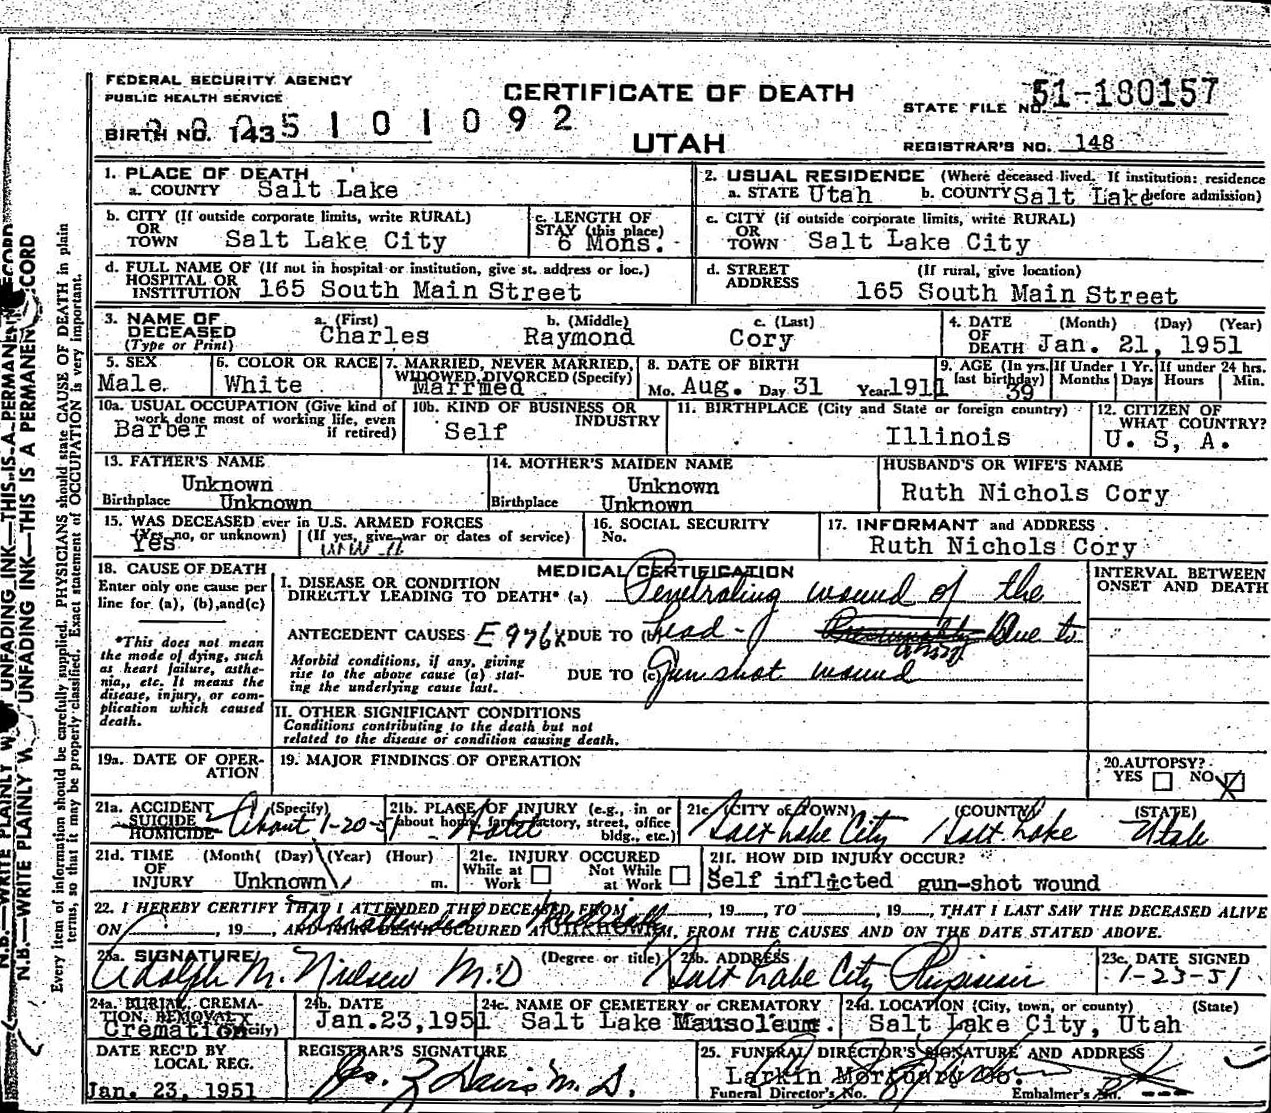 FEDERAL SECURITY AGENCY
PUBLIC HEALTH SERVICE
CERTIFICATE OF DEATH
STATE FILE NO. 51-180157
BIRTH NO. 143 5101092
UTAH
REGISTRAR'S NO. 148
1. PLACE OF DEATH
a. COUNTY Salt Lake
2. USUAL RESIDENCE (Where deceased lived. If institution: residence before admission)
a. STATE Utah b. COUNTY Salt Lake
b. CITY (If outside corporate limits, write RURAL)
OR TOWN Salt Lake City
c. LENGTH OF STAY (this place) 6 Mons.
c. CITY (if outside corporate limits, write RURAL)
OR TOWN Salt Lake City
d. FULL NAME OF (If not in hospital or institution, give st. address or loc.)
HOSPITAL OR INSTITUTION 165 South Main Street
d. STREET ADDRESS (If rural, give location)
165 South Main Street
3. NAME OF DECEASED (Type or Print)
a. (First) Charles b. (Middle) Raymond c. (Last) Cory
4. DATE OF DEATH (Month) (Day) (Year) Jan. 21, 1951
5. SEX Male
6. COLOR OR RACE White
7. MARRIED, NEVER MARRIED, WIDOWED, DIVORCED (Specify) Marrmed
8. DATE OF BIRTH Mo. Aug. Day 31 Year 1911
9. AGE (In yrs. last birthday) 39
If Under 1 Yr. Months Days
If under 24 hrs. Hours Min.
10a. USUAL OCCUPATION (Give kind of work done most of working life, even if retired) Barber
10b. KIND OF BUSINESS OR INDUSTRY Self
11. BIRTHPLACE (City and State or foreign country) Illinois
12. CITIZEN OF WHAT COUNTRY? U. S, A.
13. FATHER'S NAME Unknown
Birthplace Unknown
14. MOTHER'S MAIDEN NAME Unknown
Birthplace Unknown
HUSBAND'S OR WIFE'S NAME Ruth Nichols Cory
15. WAS DECEASED ever in U.S. ARMED FORCES
(Yes, no, or unknown) Yes (If yes, give war or dates of service) WW II
16. SOCIAL SECURITY No.
17. INFORMANT and ADDRESS
Ruth Nichols Cory
18. CAUSE OF DEATH
Enter only one cause per line for (a), (b), and (c)
*This does not mean the mode of dying, such as heart failure, asthenia, etc. It means the disease, injury, or complication which caused death.
MEDICAL CERTIFICATION
INTERVAL BETWEEN ONSET AND DEATH
I. DISEASE OR CONDITION
DIRECTLY LEADING TO DEATH* (a) Penetrating wound of the
ANTECEDENT CAUSES E976X DUE TO (b) head - Due to
Morbid conditions, if any, giving rise to the above cause (a) stating the underlying cause last.
DUE TO (c) Gun shot wound
II. OTHER SIGNIFICANT CONDITIONS
Conditions contributing to the death but not
related to the disease or condition causing death.
19a. DATE OF OPERATION
19. MAJOR FINDINGS OF OPERATION
20. AUTOPSY? YES NO X
21a. ACCIDENT SUICIDE HOMICIDE (Specify) About 1-20-51
21b. PLACE OF INJURY (e.g., in or about home, farm, factory, street, office bldg., etc.) Hotel
21c. (CITY or TOWN) (COUNTY) (STATE)
Salt Lake City Salt Lake Utah
21d. TIME OF INJURY (Month) (Day) (Year) (Hour) m. Unknown
21e. INJURY OCCURED
While at Work Not While at Work
21f. HOW DID INJURY OCCUR?
Self inflicted gun-shot wound
22. I HEREBY CERTIFY THAT I ATTENDED THE DECEASED FROM , 19 , TO , 19 , THAT I LAST SAW THE DECEASED ALIVE
ON , 19 , AND THAT DEATH OCCURED AT Unknown M., FROM THE CAUSES AND ON THE DATE STATED ABOVE.
23a. SIGNATURE (Degree or title)
Adolph M. Nielsen M.D
23b. ADDRESS
Salt Lake City Physician
23c. DATE SIGNED
1-23-51
24a. BURIAL, CREMATION, REMOVAL (Specify) Cremation
24b. DATE Jan.23,1951
24c. NAME OF CEMETERY or CREMATORY
Salt Lake Mausoleum.
24d. LOCATION (City, town, or county) (State)
Salt Lake City, Utah
DATE REC'D BY LOCAL REG.
Jan. 23, 1951
REGISTRAR'S SIGNATURE
25. FUNERAL DIRECTOR'S SIGNATURE AND ADDRESS
Larkin Mortuary Co.
Funeral Director's No. Embalmer's No.
N.B.—WRITE PLAINLY W UNFADING INK—THIS IS A PERMANENT RECORD
Every item of information should be carefully supplied. PHYSICIANS should state CAUSE OF DEATH in plain
terms, so that it may be properly classified. Exact statement of OCCUPATION is very important.